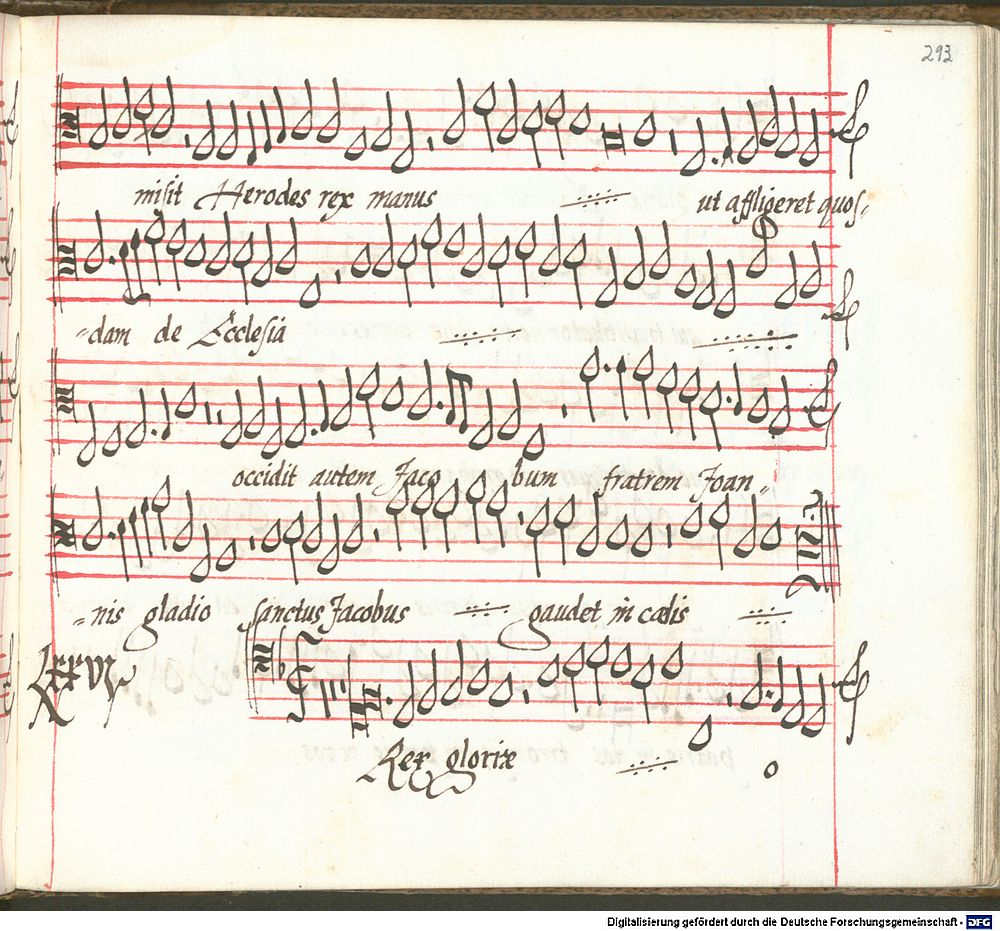 293
misit Herodes rex manus ut affligeret quos-
=dam de Ecclesia
occidit autem Jaco bum fratrem Joan=
=nis gladio Sanctus Jacobus gaudet in cœlis
LXXVI
Rex gloriæ o
Digitalisierung gefördert durch die Deutsche Forschungsgemeinschaft - DFG